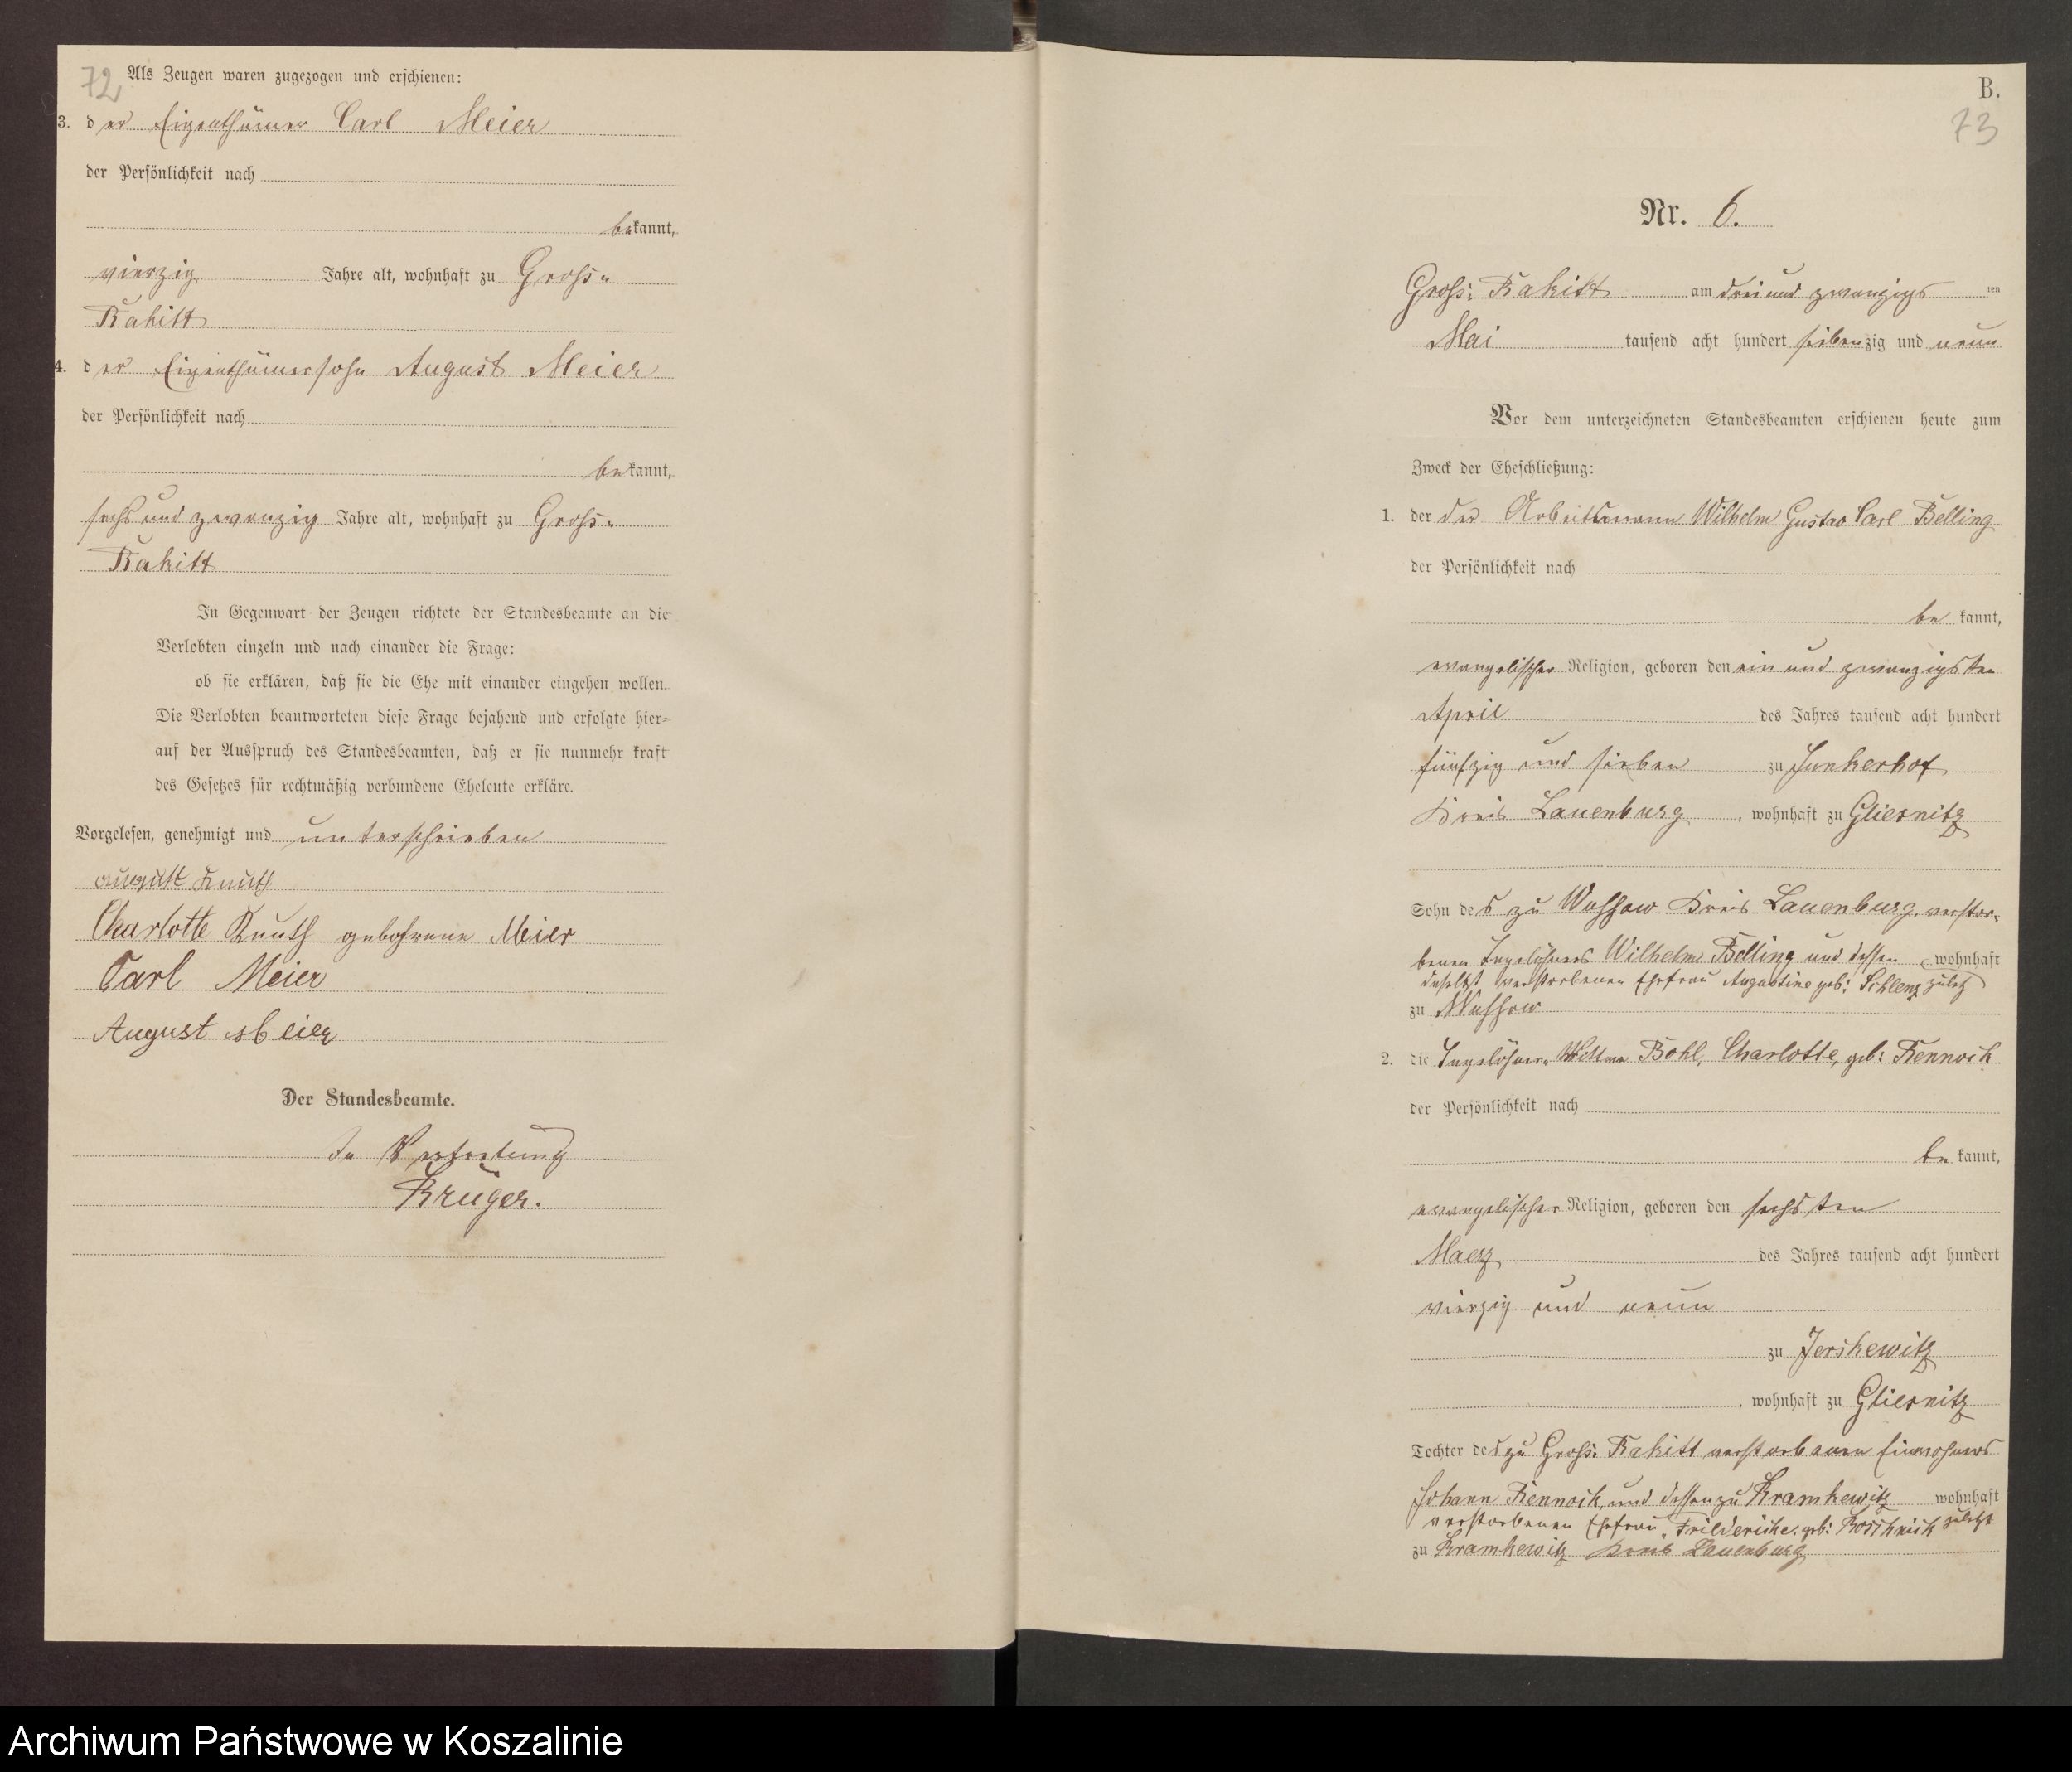 72
Als Zeugen waren zugezogen und erschienen:
3. der Eigenthümer Carl Meier
der Persönlichkeit nach
bekannt,
vierzig Jahre alt, wohnhaft zu Groß-
Rakitt
4. der Eigenthümersohn August Meier
der Persönlichkeit nach
bekannt,
sechsundzwanzig Jahre alt, wohnhaft zu Groß-
Rakitt
In Gegenwart der Zeugen richtete der Standesbeamte an die
Verlobten einzeln und nach einander die Frage:
ob sie erklären, daß sie die Ehe mit einander eingehen wollen.
Die Verlobten beantworteten diese Frage bejahend und erfolgte hier-
auf der Ausspruch des Standesbeamten, daß er sie nunmehr kraft
des Gesetzes für rechtmäßig verbundene Eheleute erkläre.
Vorgelesen, genehmigt und unterschrieben
august Knuth
Charlotte Knuth gebohrene Meier
Carl Meier
August Meier
Der Standesbeamte.
In Vertretung
Krüger.
B.
73
Nr. 6.
Groß-Rakitt am dreiundzwanzigsten
Mai tausend acht hundert siebenzig und neun
Vor dem unterzeichneten Standesbeamten erschienen heute zum
Zweck der Eheschließung:
1. der der Arbeitsmann Wilhelm Gustav Carl Belling
der Persönlichkeit nach
bekannt,
evangelischer Religion, geboren den ein und zwanzigsten
April des Jahres tausend acht hundert
fünfzig und sieben zu Junkerhof
Kreis Lauenburg, wohnhaft zu Gliesnitz
Sohn des zu Wussow Kreis Lauenburg verstor-
benen Tagelöhners Wilhelm Belling und dessen wohnhaft
daselbst verstorbenen Ehefrau Augustine geb: Schlenz zuletzt
zu Wussow
2. die Tagelöhner-Wittwe Bohl, Charlotte, geb: Rennock
der Persönlichkeit nach
bekannt,
evangelischer Religion, geboren den sechsten
Maerz des Jahres tausend acht hundert
vierzig und neun
zu Jerskewitz
, wohnhaft zu Gliesnitz
Tochter des zu Groß-Rakitt verstorbenen Einwohners
Johann Rennock, und dessen zu Kramkewitz wohnhaft
verstorbenen Ehefrau, Friedericke, geb: zuletzt
zu Kramkewitz Kreis Lauenburg
Archiwum Państwowe w Koszalinie